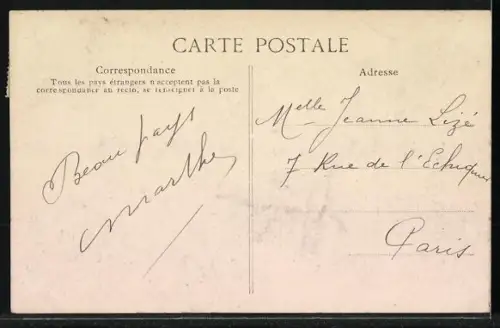 CARTE POSTALE
Correspondance
Tous les pays étrangers n'acceptent pas la
correspondance au recto, se renseigner à la poste
Beau pays
Marthe
Adresse
Melle Jeanne Lizé
7 Rue de l'Echiquier
Paris